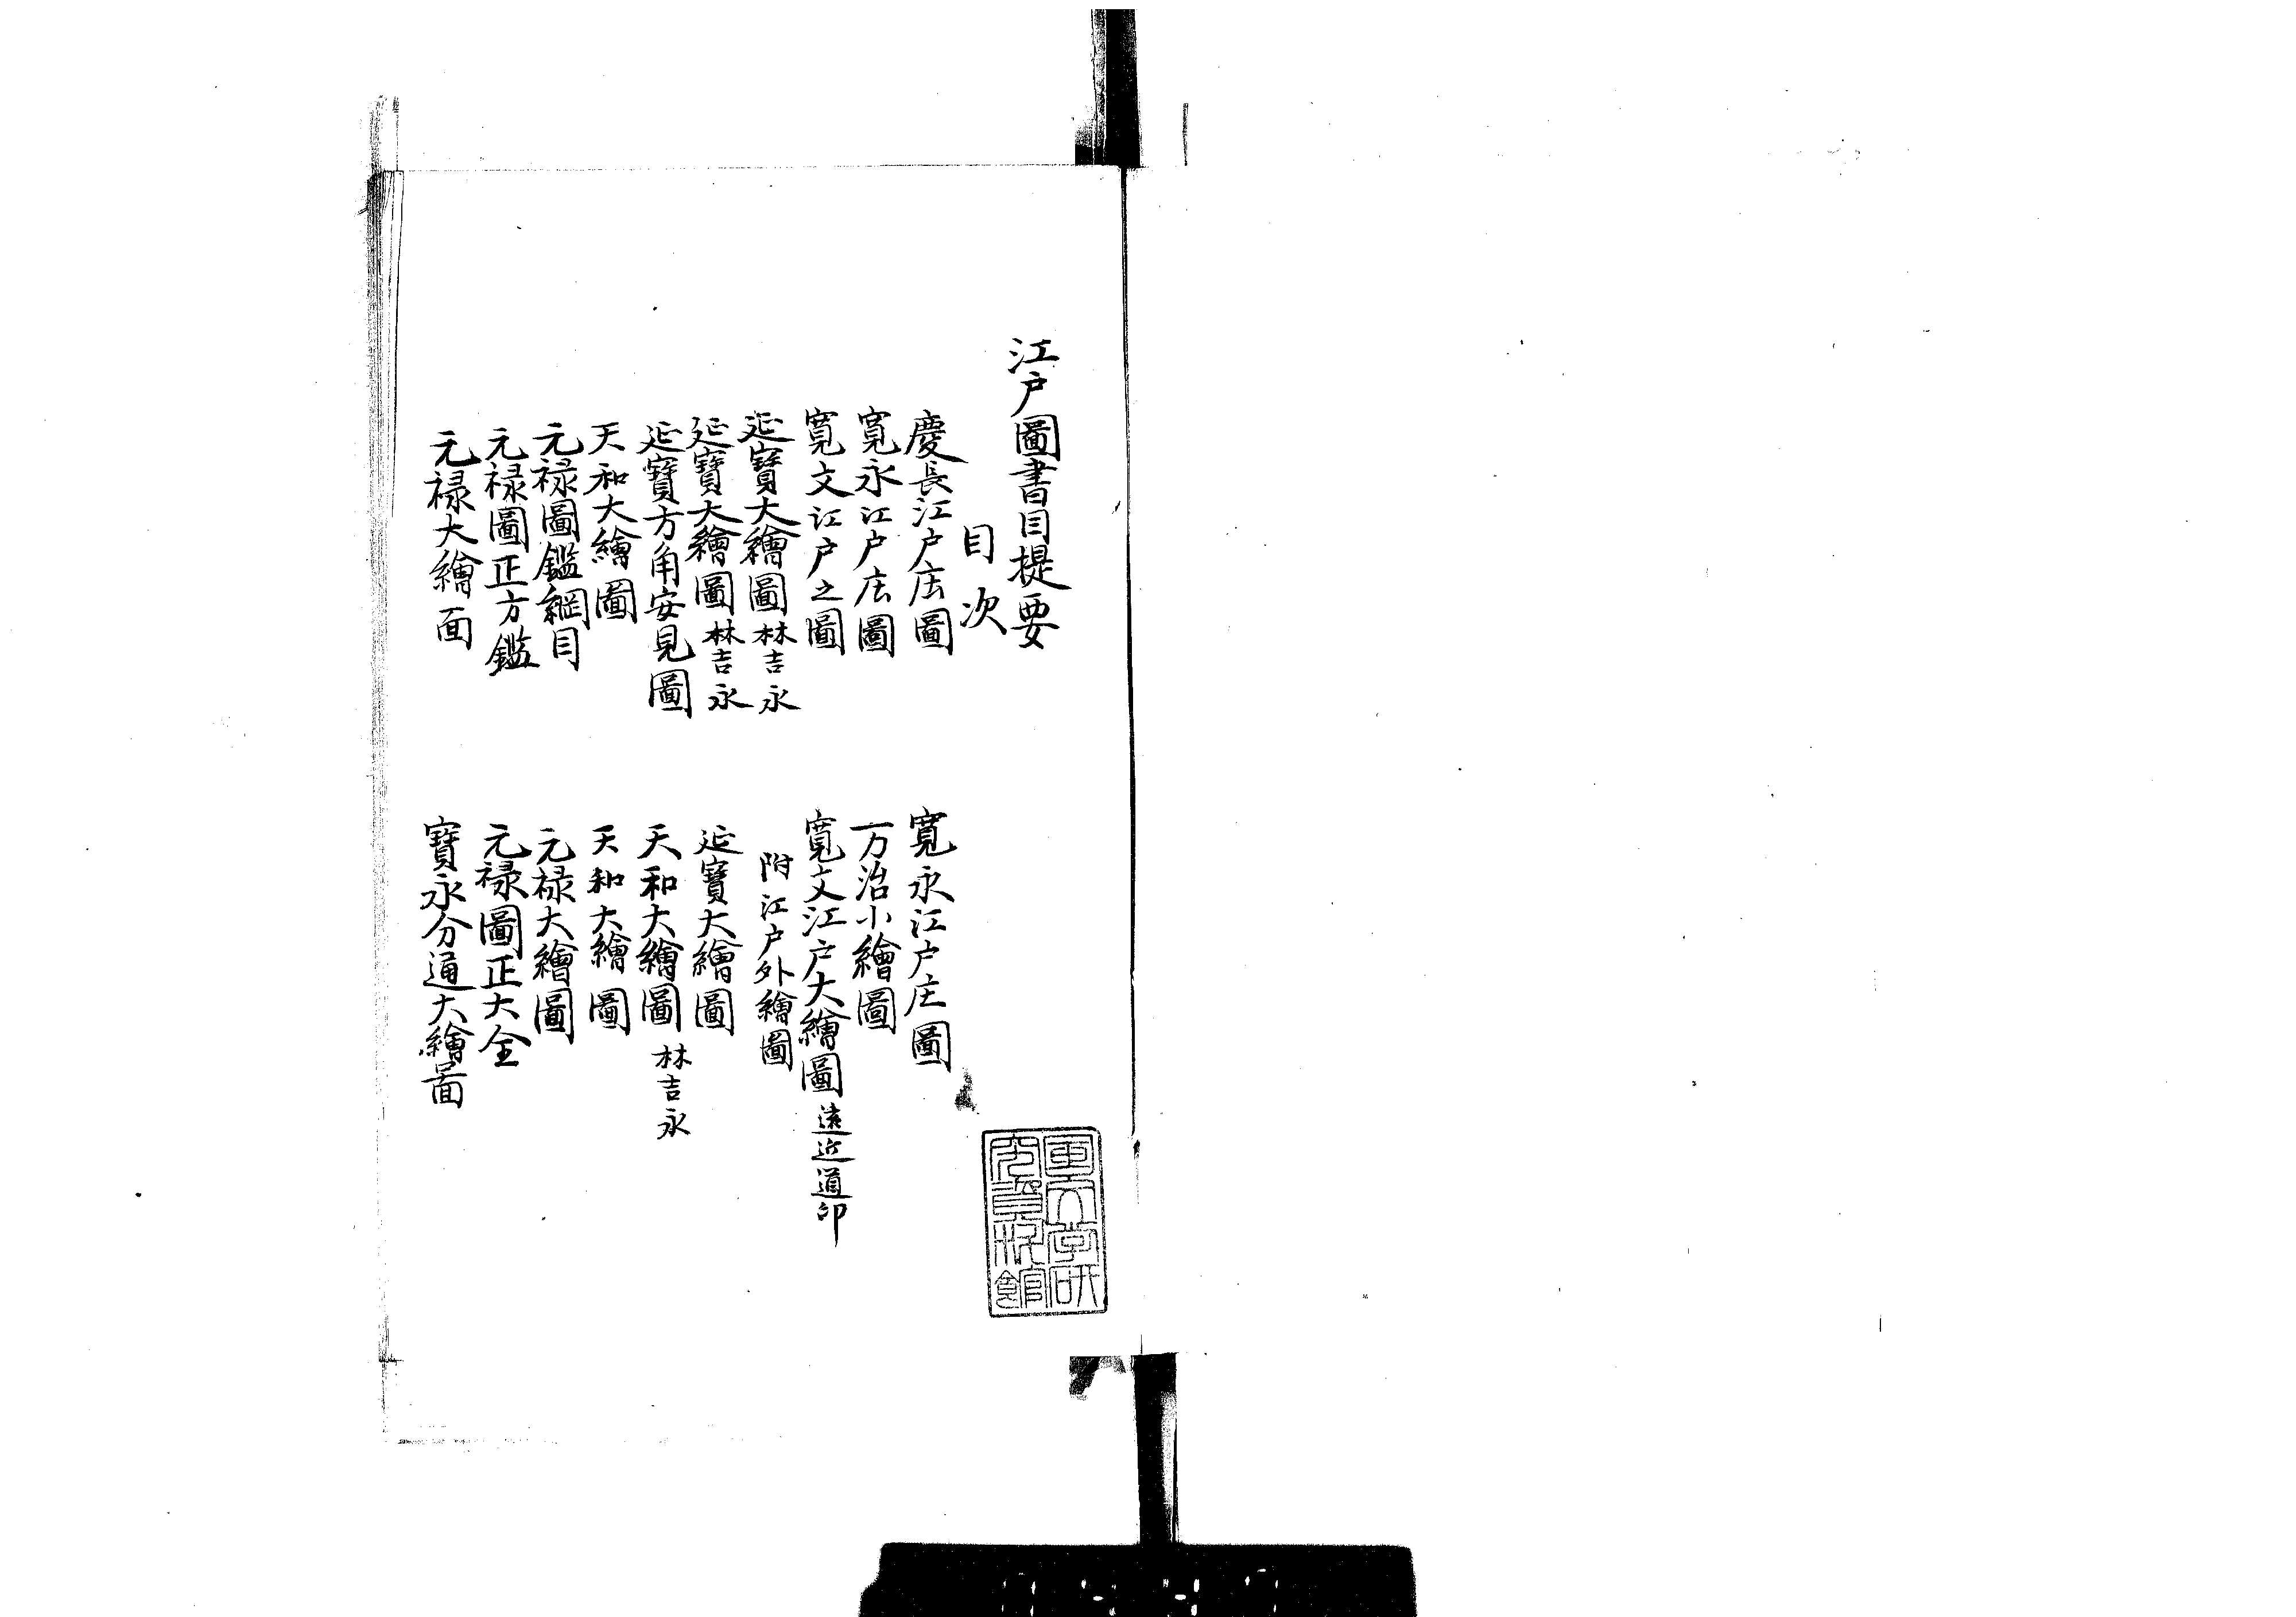 江戸圖書目提要
目次
慶長江戸庄圖
寛永江戸庄圖
寛永江戸庄圖
万治小繪圖
寛文江戸之圖
寛文江戸大繪圖 遠近道印
延寶大繪圖 林吉永
附江戸外繪圖
延寶大繪圖 林吉永
延寶大繪圖
延寶方角安見圖
天和大繪圖 林吉永
天和大繪圖
天和大繪圖
元禄圖鑑綱目
元禄大繪圖
元禄圖正方鑑
元禄圖正大全
元禄大繪面
寶永分通大繪啚
国文学研
究資料館